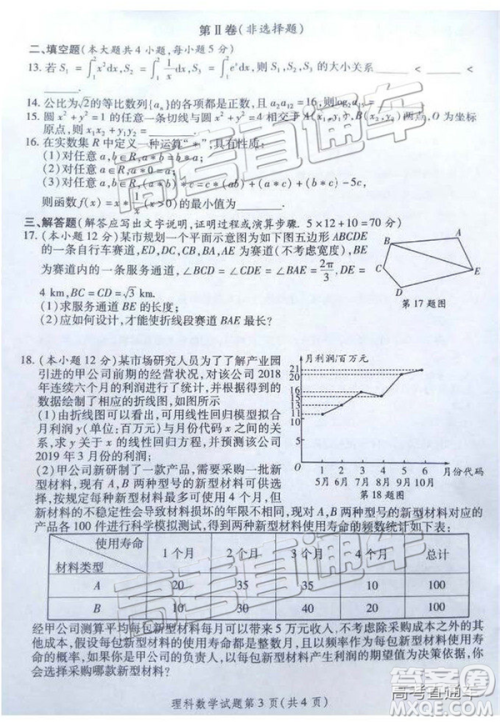 第Ⅱ卷(非选择题)
二、填空题(本大题共4小题,每小题5分)
13. 若 S₁=∫₁²x²dx, S₂=∫₁²1/x dx, S₃=∫₁²eˣdx, 则 S₁,S₂,S₃ 的大小关系 < <
14. 公比为√2的等比数列{aₙ}的各项都是正数,且a₂a₁₂=16,则log₂
15. 圆x²+y²=1的任意一条切线与圆x²+y²=4相交于A(x₁,y₁),B(x₂,y₂)两点,O为坐标
原点,则x₁x₂+y₁y₂=
16. 在实数集R中定义一种运算“*”,具有性质:
(1)对任意a,b∈R,a*b=b*a;
(2)对任意a
(3)对任意a,b =c*(ab)+(a*c)+(b*c)-5c,
则函数f(x)= (x>0)的最小值为
三、解答题(解答应写出文字说明,证明过程或演算步骤. 5×12+10=70分)
17. (本小题12分)某市规划一个平面示意图为如下图五边形ABCDE
的一条自行车赛道,ED,DC,CB,BA,AE为赛道(不考虑宽度),BE
为赛道内的一条服务通道,∠BCD=∠CDE=∠BAE=2π/3,DE=
4 km,BC=CD=√3 km.
(1)求服务通道BE的长度;
(2)应如何设计,才能使折线段赛道BAE最长?
A
B
C
D
E
第17题图
18. (本小题12分)某市场研究人员为了了解产业园
引进的甲公司前期的经营状况,对该公司2018
年连续六个月的利润进行了统计,并根据得到的
数据绘制了相应的折线图,如图所示
(1)由折线图可以看出,可用线性回归模型拟合
月利润y(单位:百万元)与月份代码x之间的关
系,求y关于x的线性回归方程,并预测该公司
2019年3月份的利润;
(2)甲公司新研制了一款产品,需要采购一批新
型材料,现有A,B两种型号的新型材料可供选
择,按规定每种新型材料最多可使用4个月,但
新材料的不稳定性会导致材料损坏的年限不相同,现对A,B两种型号的新型材料对应的产
品各100件进行科学模拟测试,得到两种新型材料使用寿命的频数统计如下表:
月利润/百万元
21
20
16
15
13
11
1 2 3 4 5 6 月份代码
5月 6月 7月 8月 9月 10月
第18题图
使用寿命 1个月 2个月 3个月 4个月 总计
材料类型
A 20 35 35 10 100
B 10 30 40 20 100
经甲公司测算平均每包新型材料每月可以带来5万元收入,不考虑除采购成本之外的其
他成本,假设每包新型材料的使用寿命都是整数月,且以频率作为每包新型材料使用寿
命的概率,如果你是甲公司的负责人,以每包新型材料产生利润的期望值为决策依据,你
会选择采购哪款新型材料?
理科数学试题第3页(共4页)
高考直通车
高考直通车
高考直通车